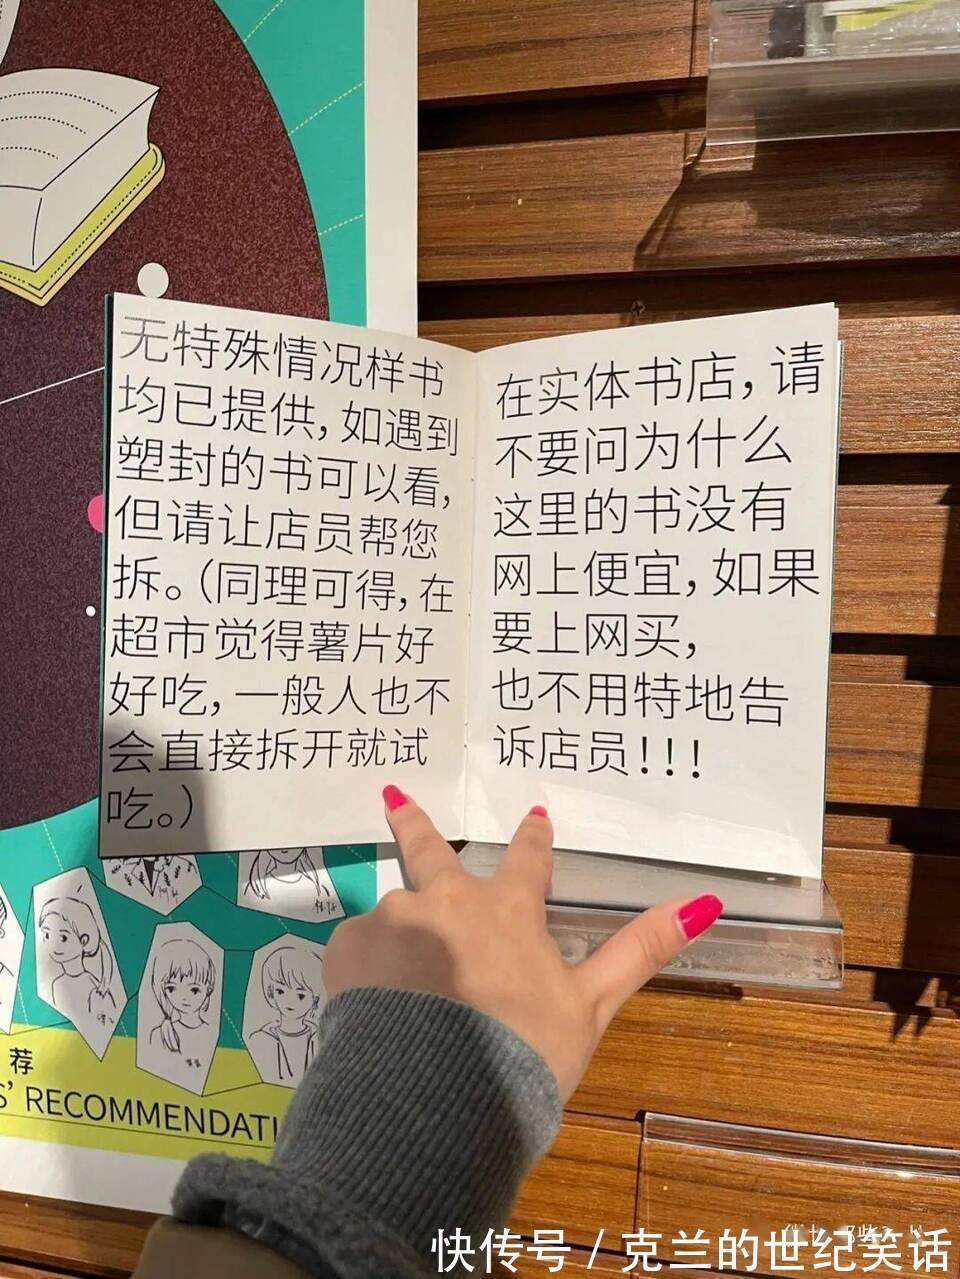 无特殊情况样书
均已提供,如遇到
塑封的书可以看,
但请让店员帮您
拆。(同理可得,在
超市觉得薯片好
好吃,一般人也不
会直接拆开就试
吃。)
在实体书店,请
不要问为什么
这里的书没有
网上便宜,如果
要上网买,
也不用特地告
诉店员!!!
荐
S' RECOMMENDATI
快传号 / 克兰的世纪笑话